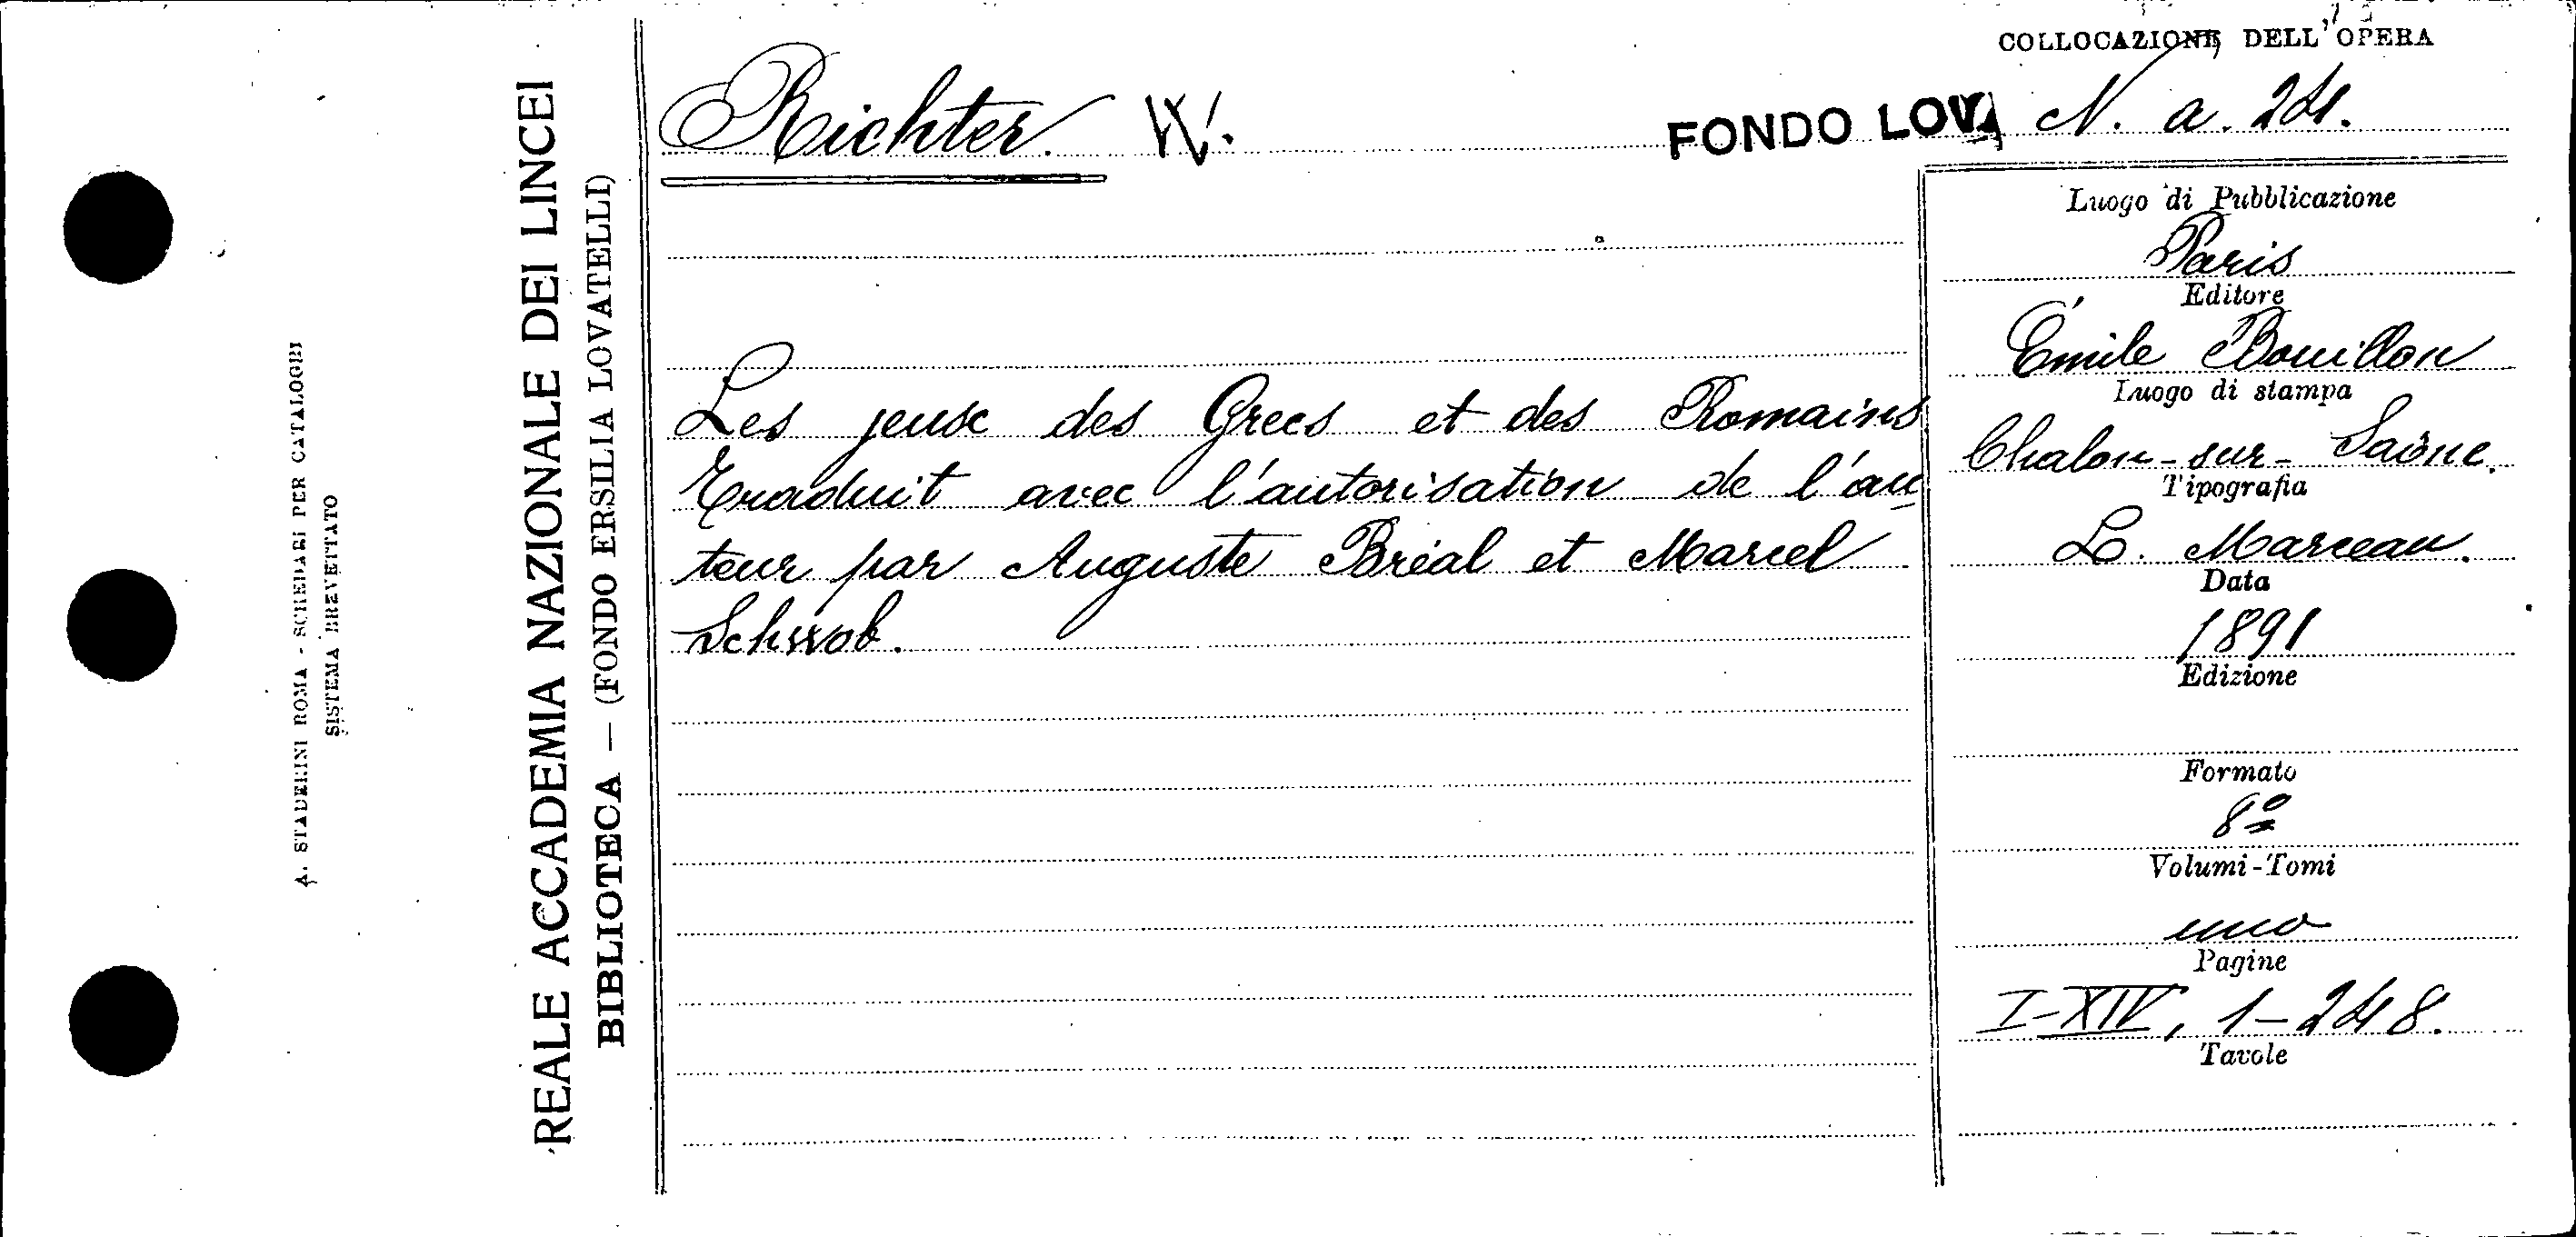 A. STADERINI ROMA - SCHEDARI PER CATALOGHI
SISTEMA BREVETTATO
REALE ACCADEMIA NAZIONALE DEI LINCEI
BIBLIOTECA — (FONDO ERSILIA LOVATELLI)
COLLOCAZIONE DELL'OPERA
Richter W.
FONDO LOV. N. a. 24.
Les jeux des Grecs et des Romains
Traduit avec l'autorisation de l'au-
teur par Auguste Bréal et Marcel
Schwob.
Luogo di Pubblicazione
Paris
Editore
Émile Bouillon
Luogo di stampa
Chalon-sur-Saône.
Tipografia
L. Marceau.
Data
1891
Edizione
Formato
8º
Volumi-Tomi
uno
Pagine
I-XIV, 1-248.
Tavole